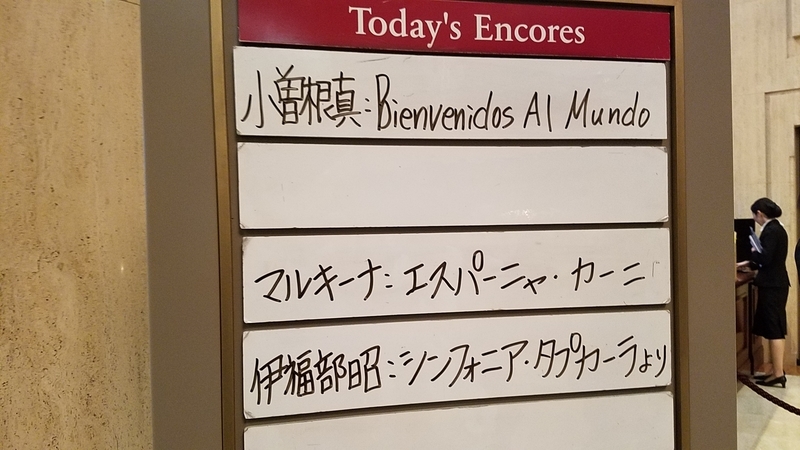 Today's Encores
小曽根真:Bienvenidos Al Mundo
マルキーナ:エスパーニャ・カーニ
伊福部昭:シンフォニア・タプカーラより